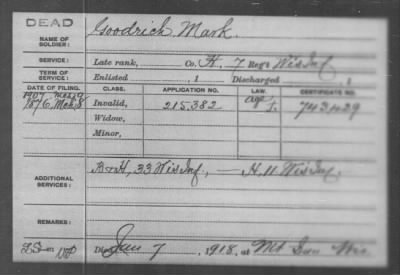 DEAD
NAME OF SOLDIER: Goodrich Mark.
SERVICE: Late rank, Co. H, 7 Reg't Wis Inf
TERM OF SERVICE: Enlisted , 1 Discharged , 1
DATE OF FILING. CLASS. APPLICATION NO. LAW. CERTIFICATE NO.
1876 Mch 8 Invalid, 215,382 743429
Widow,
Minor,
ADDITIONAL SERVICES: B & H, 33 Wis Inf, — H. 11 Wis Inf.
REMARKS:
Died Jan 7, 1918, at Wis